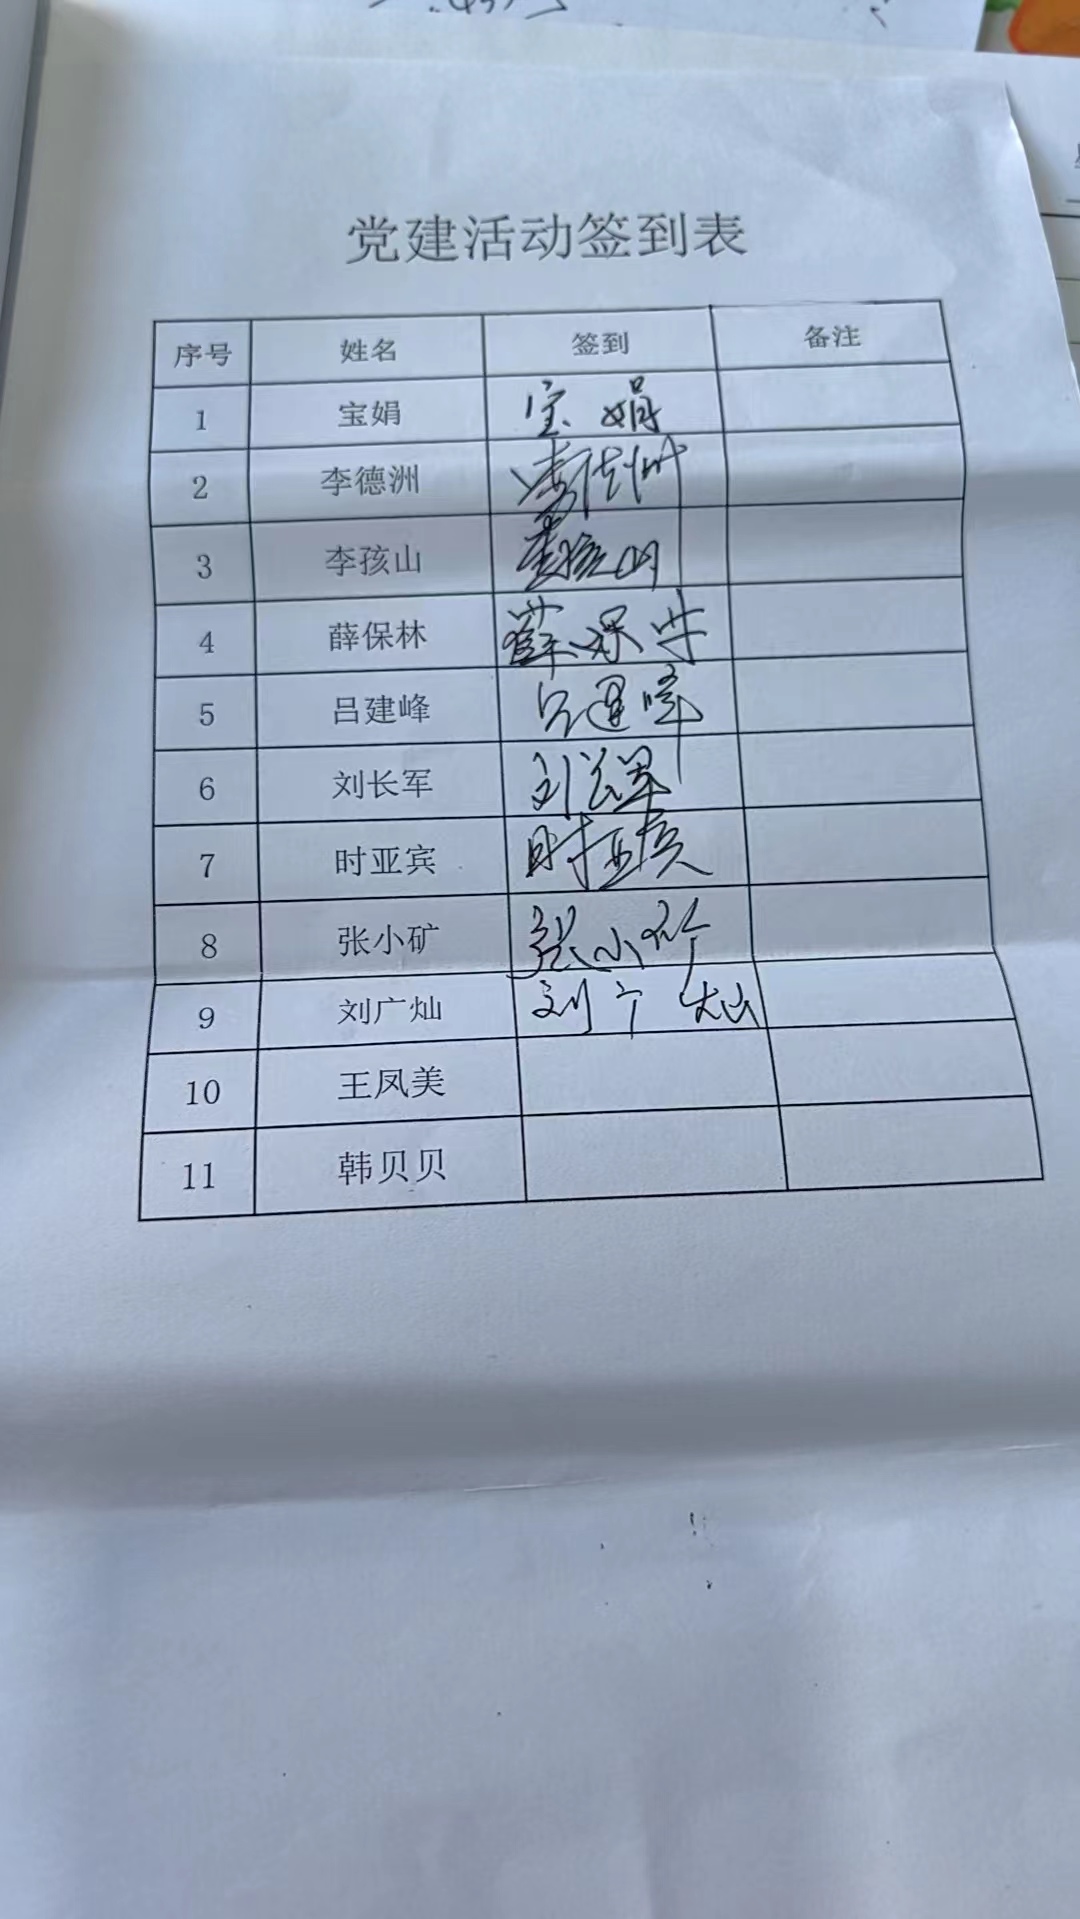 党建活动签到表
序号 姓名 签到 备注
1 宝娟 宝娟
2 李德洲 李德洲
3 李孩山 李孩山
4 薛保林 薛保林
5 吕建峰 吕建峰
6 刘长军 刘长军
7 时亚宾 时亚宾
8 张小矿 张小矿
9 刘广灿 刘广灿
10 王凤美
11 韩贝贝